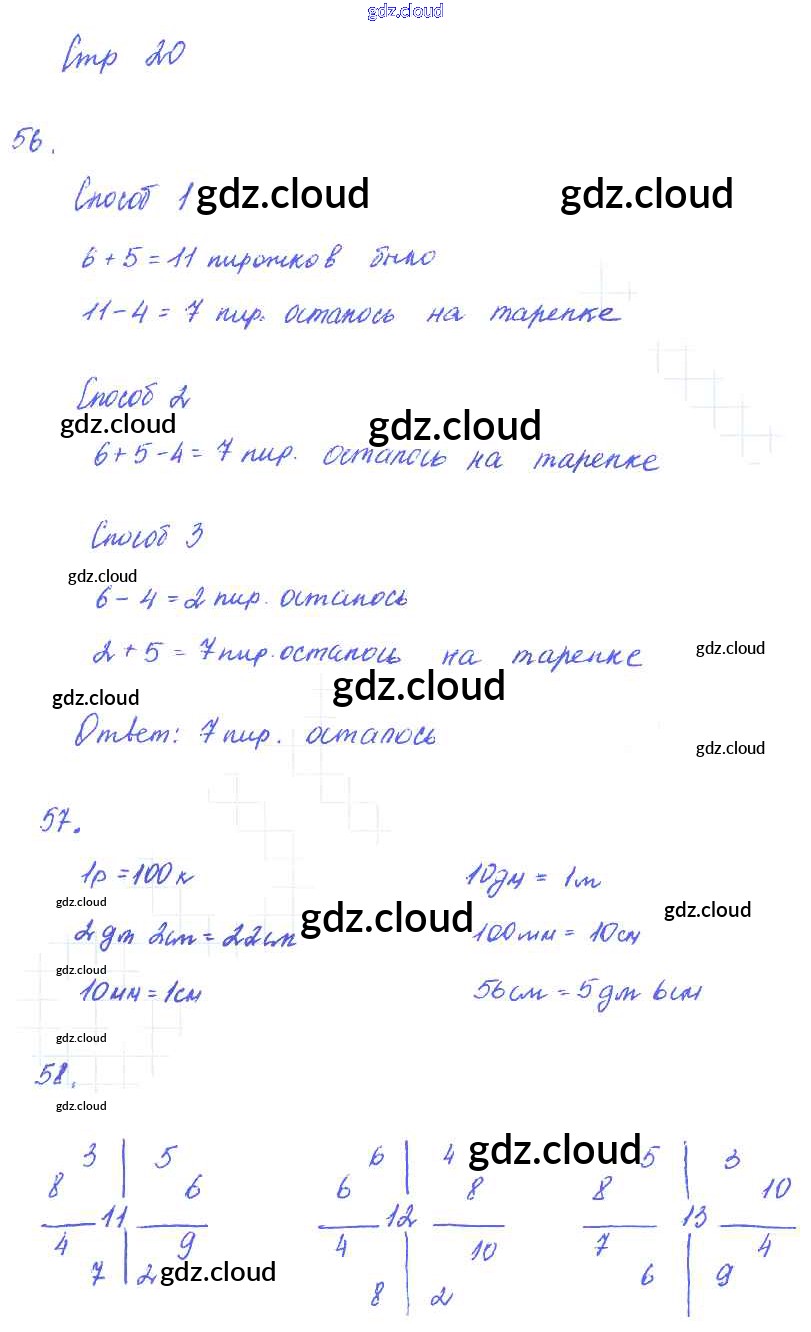 gdz.cloud
Стр 20
56.
Способ 1 gdz.cloud gdz.cloud
6 + 5 = 11 пирожков было
11 - 4 = 7 пир. осталось на тарелке
Способ 2
gdz.cloud gdz.cloud
6 + 5 - 4 = 7 пир. осталось на тарелке
Способ 3
gdz.cloud
6 - 4 = 2 пир. осталось
2 + 5 = 7 пир. осталось на тарелке gdz.cloud
gdz.cloud gdz.cloud
Ответ: 7 пир. осталось
gdz.cloud
57.
1р = 100 к 10дм = 1м
gdz.cloud gdz.cloud gdz.cloud
2 дм 2см = 22см 100мм = 10см
gdz.cloud
10мм = 1см 56см = 5дм 6см
gdz.cloud
58.
gdz.cloud
3 5 6 4 gdz.cloud 5 3
8 6 6 8 8 10
11 12 13
4 9 4 10 7 4
7 2 gdz.cloud 8 2 6 9